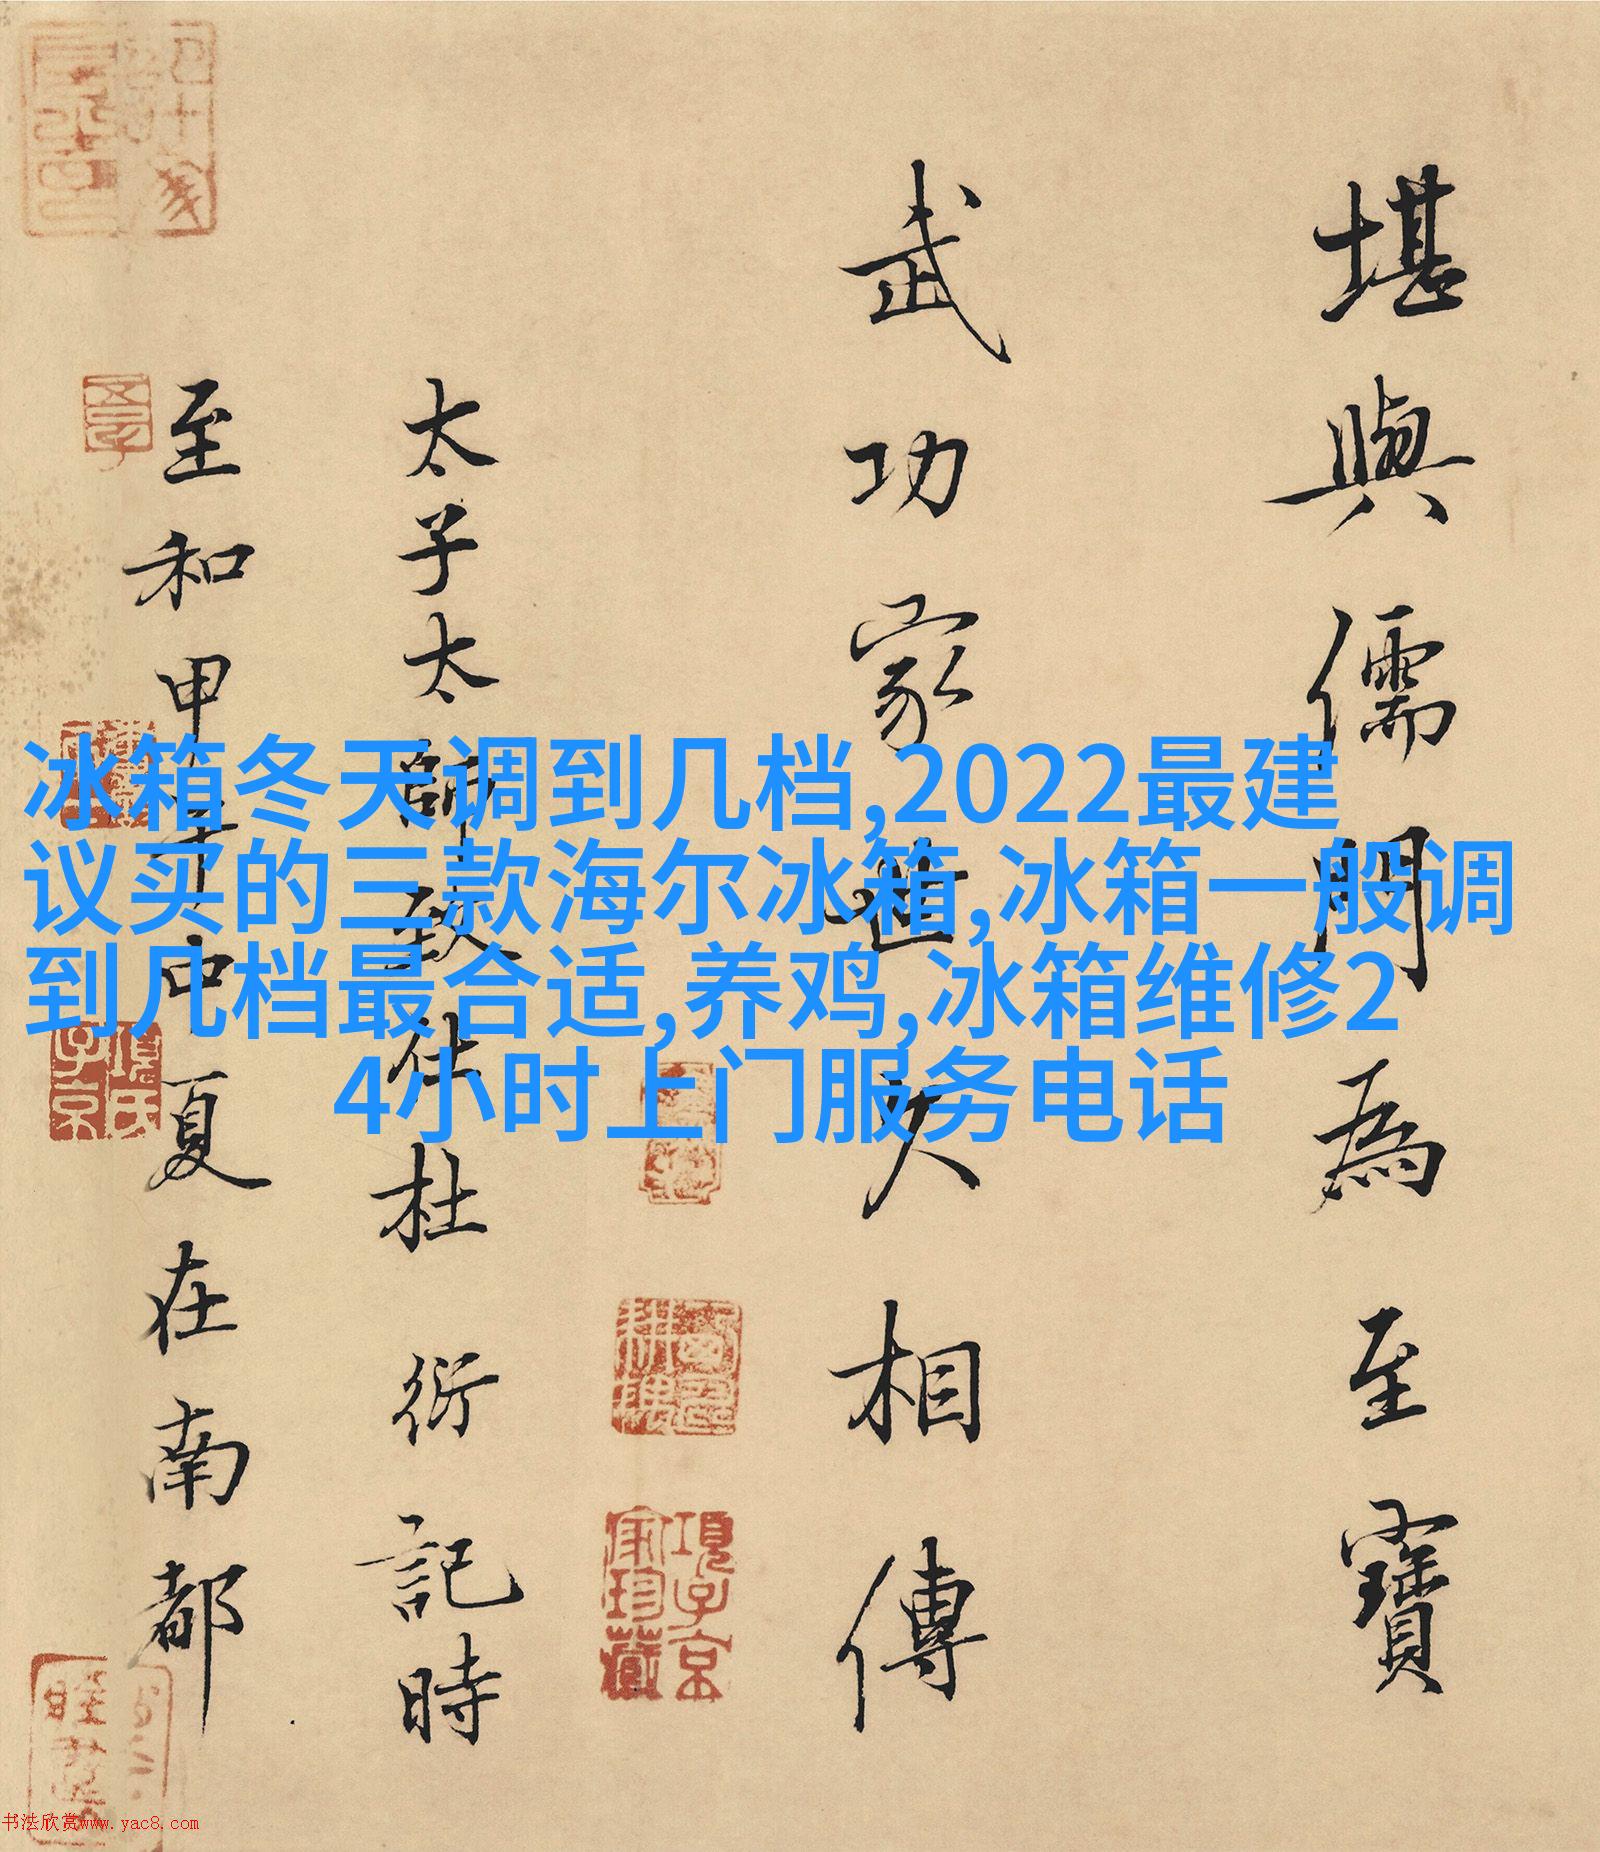 堪與儒門為至寶
武功家世久相傳
太子太師致仕杜衍記時
至和甲午中夏在南都
冰箱冬天调到几档,2022最建
议买的三款海尔冰箱,冰箱一般调
到几档最合适,养鸡,冰箱维修2
4小时上门服务电话
項子京
家珍藏
書法欣赏www.yac8.com